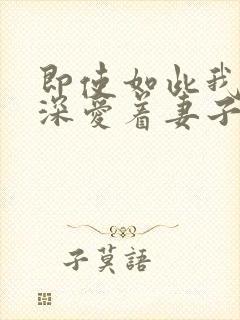 即使如此我
深愛着妻子
子莫語